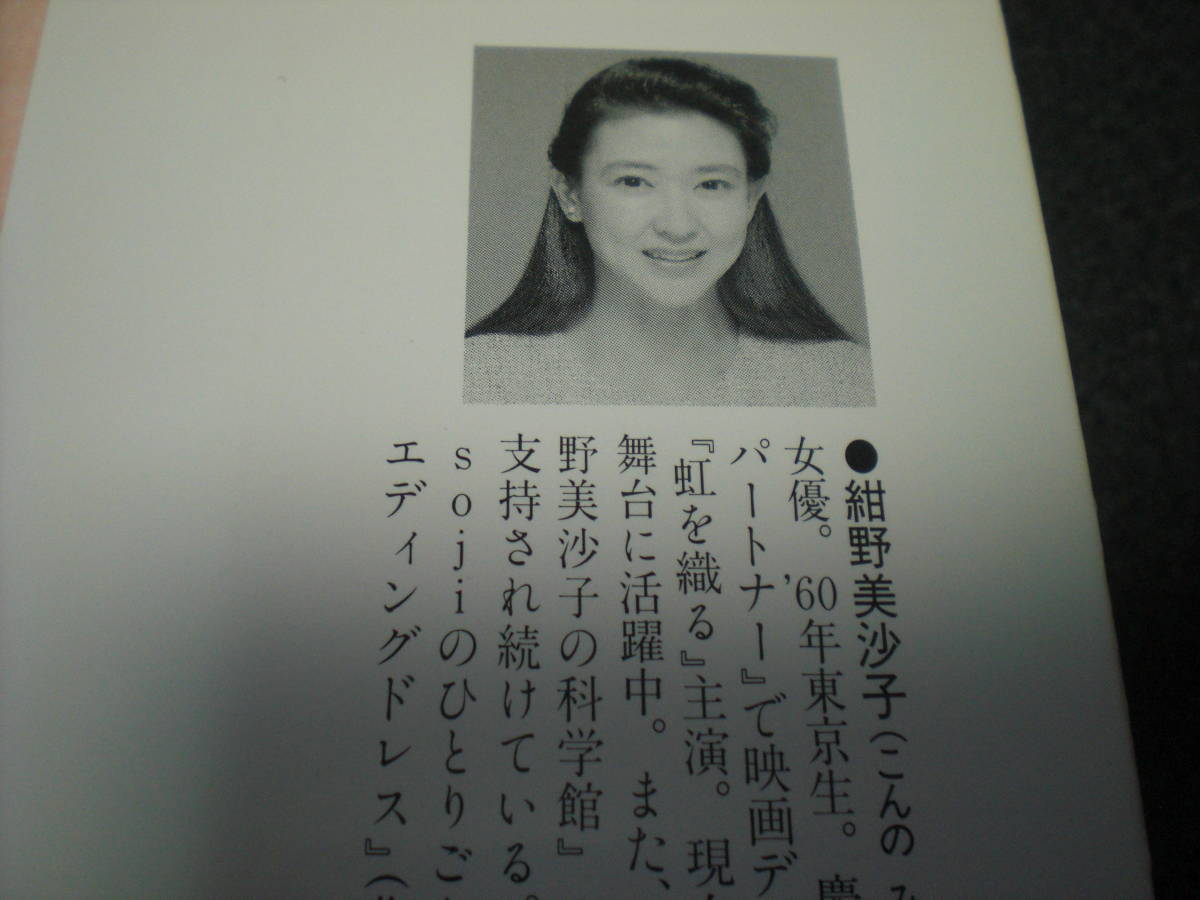 ●紺野美沙子(こんの み
女優。'60年東京生。慶
パートナー』で映画デ
『虹を織る』主演。現
舞台に活躍中。また、
野美沙子の科学館』
支持され続けている。
sojiのひとりご
エディングドレス』(